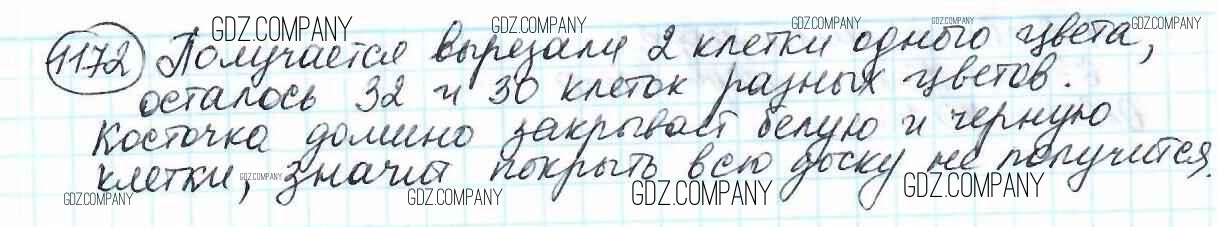 GDZ.COMPANY GDZ.COMPANY GDZ.COMPANY GDZ.COMPANY GDZ.COMPANY
1172 Получается вырезали 2 клетки одного цвета,
осталось 32 и 30 клеток разных цветов.
Косточка домино закрывает белую и черную
клетки, значит покрыть всю доску не получится.
GDZ.COMPANY GDZ.COMPANY GDZ.COMPANY GDZ.COMPANY GDZ.COMPANY GDZ.COMPANY